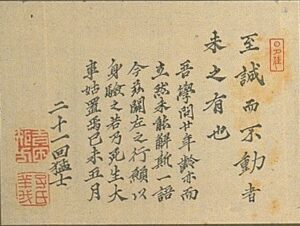 至誠而不動者
未之有也
吾學問廿年齡亦而
立然未能解斯一語
今茲關左之行願以
身驗之若乃死生大
事姑置焉己未五月
二十一回猛士